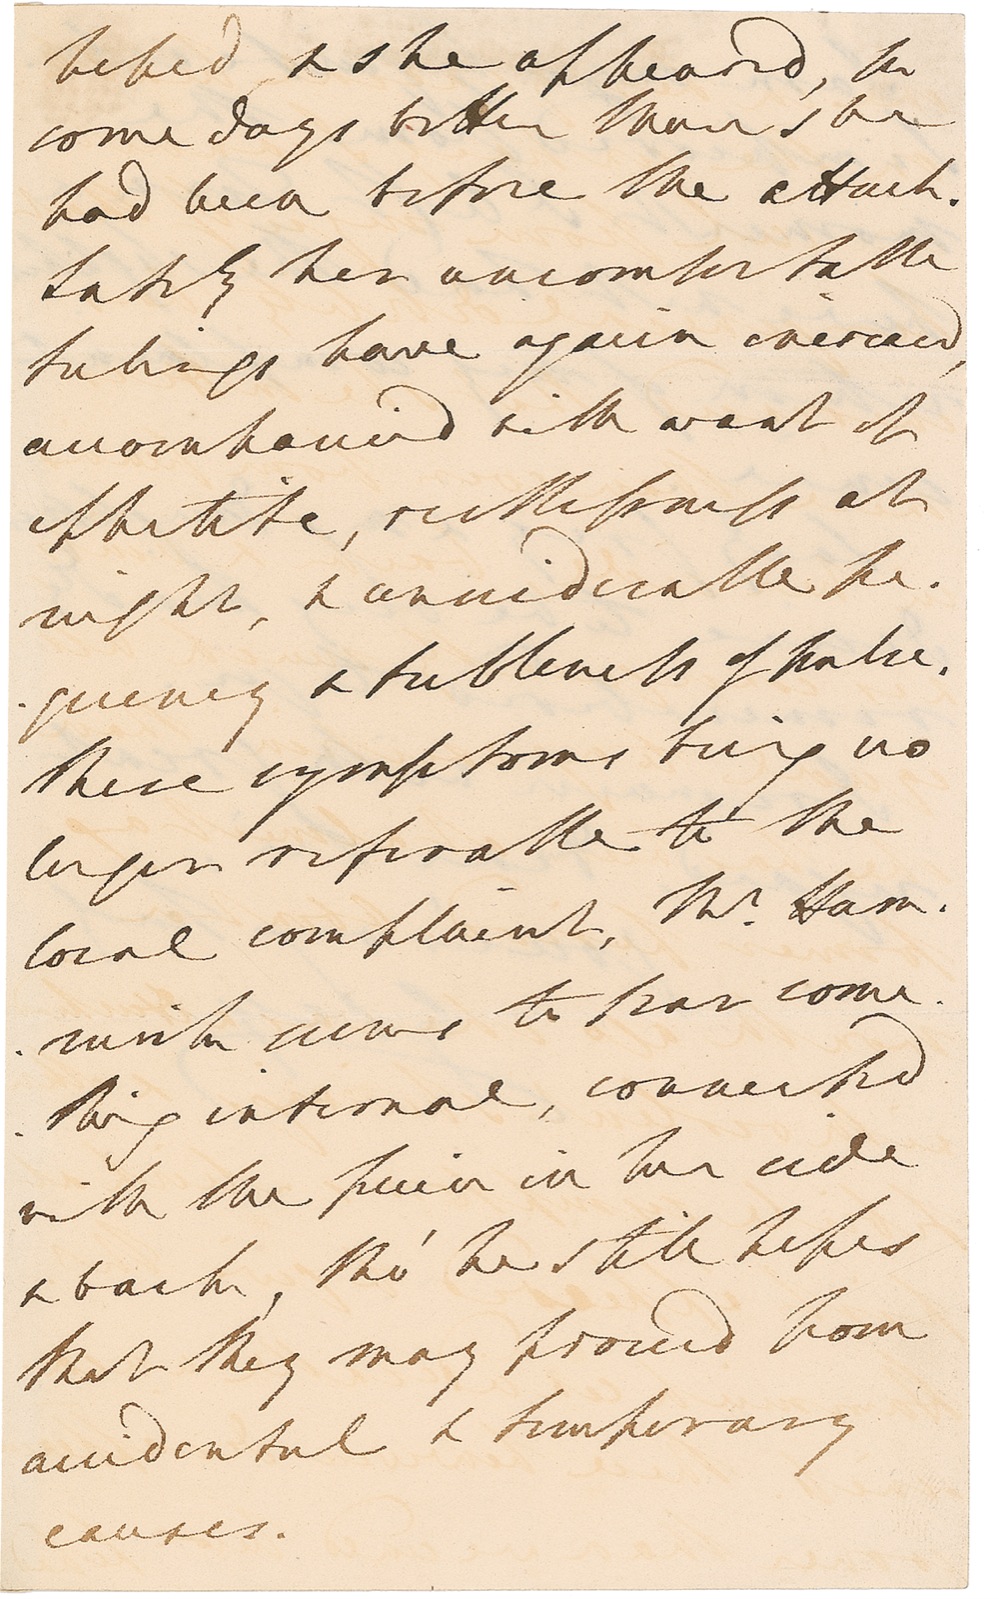 hoped & she appeared, for
some days better than she
had been before the attack.
Lately her uncomfortable
feelings have again increased,
accompanied with want of
appetite, restlessness at
night, & considerable fre-
-quency & feebleness of pulse.
These symptoms being no
longer referable to the
local complaint, Mr. Ham-
-mick seems to fear some-
-thing internal, connected
with the pain in her side
& back, tho' he still hopes
that they may proceed from
accidental & temporary
causes.